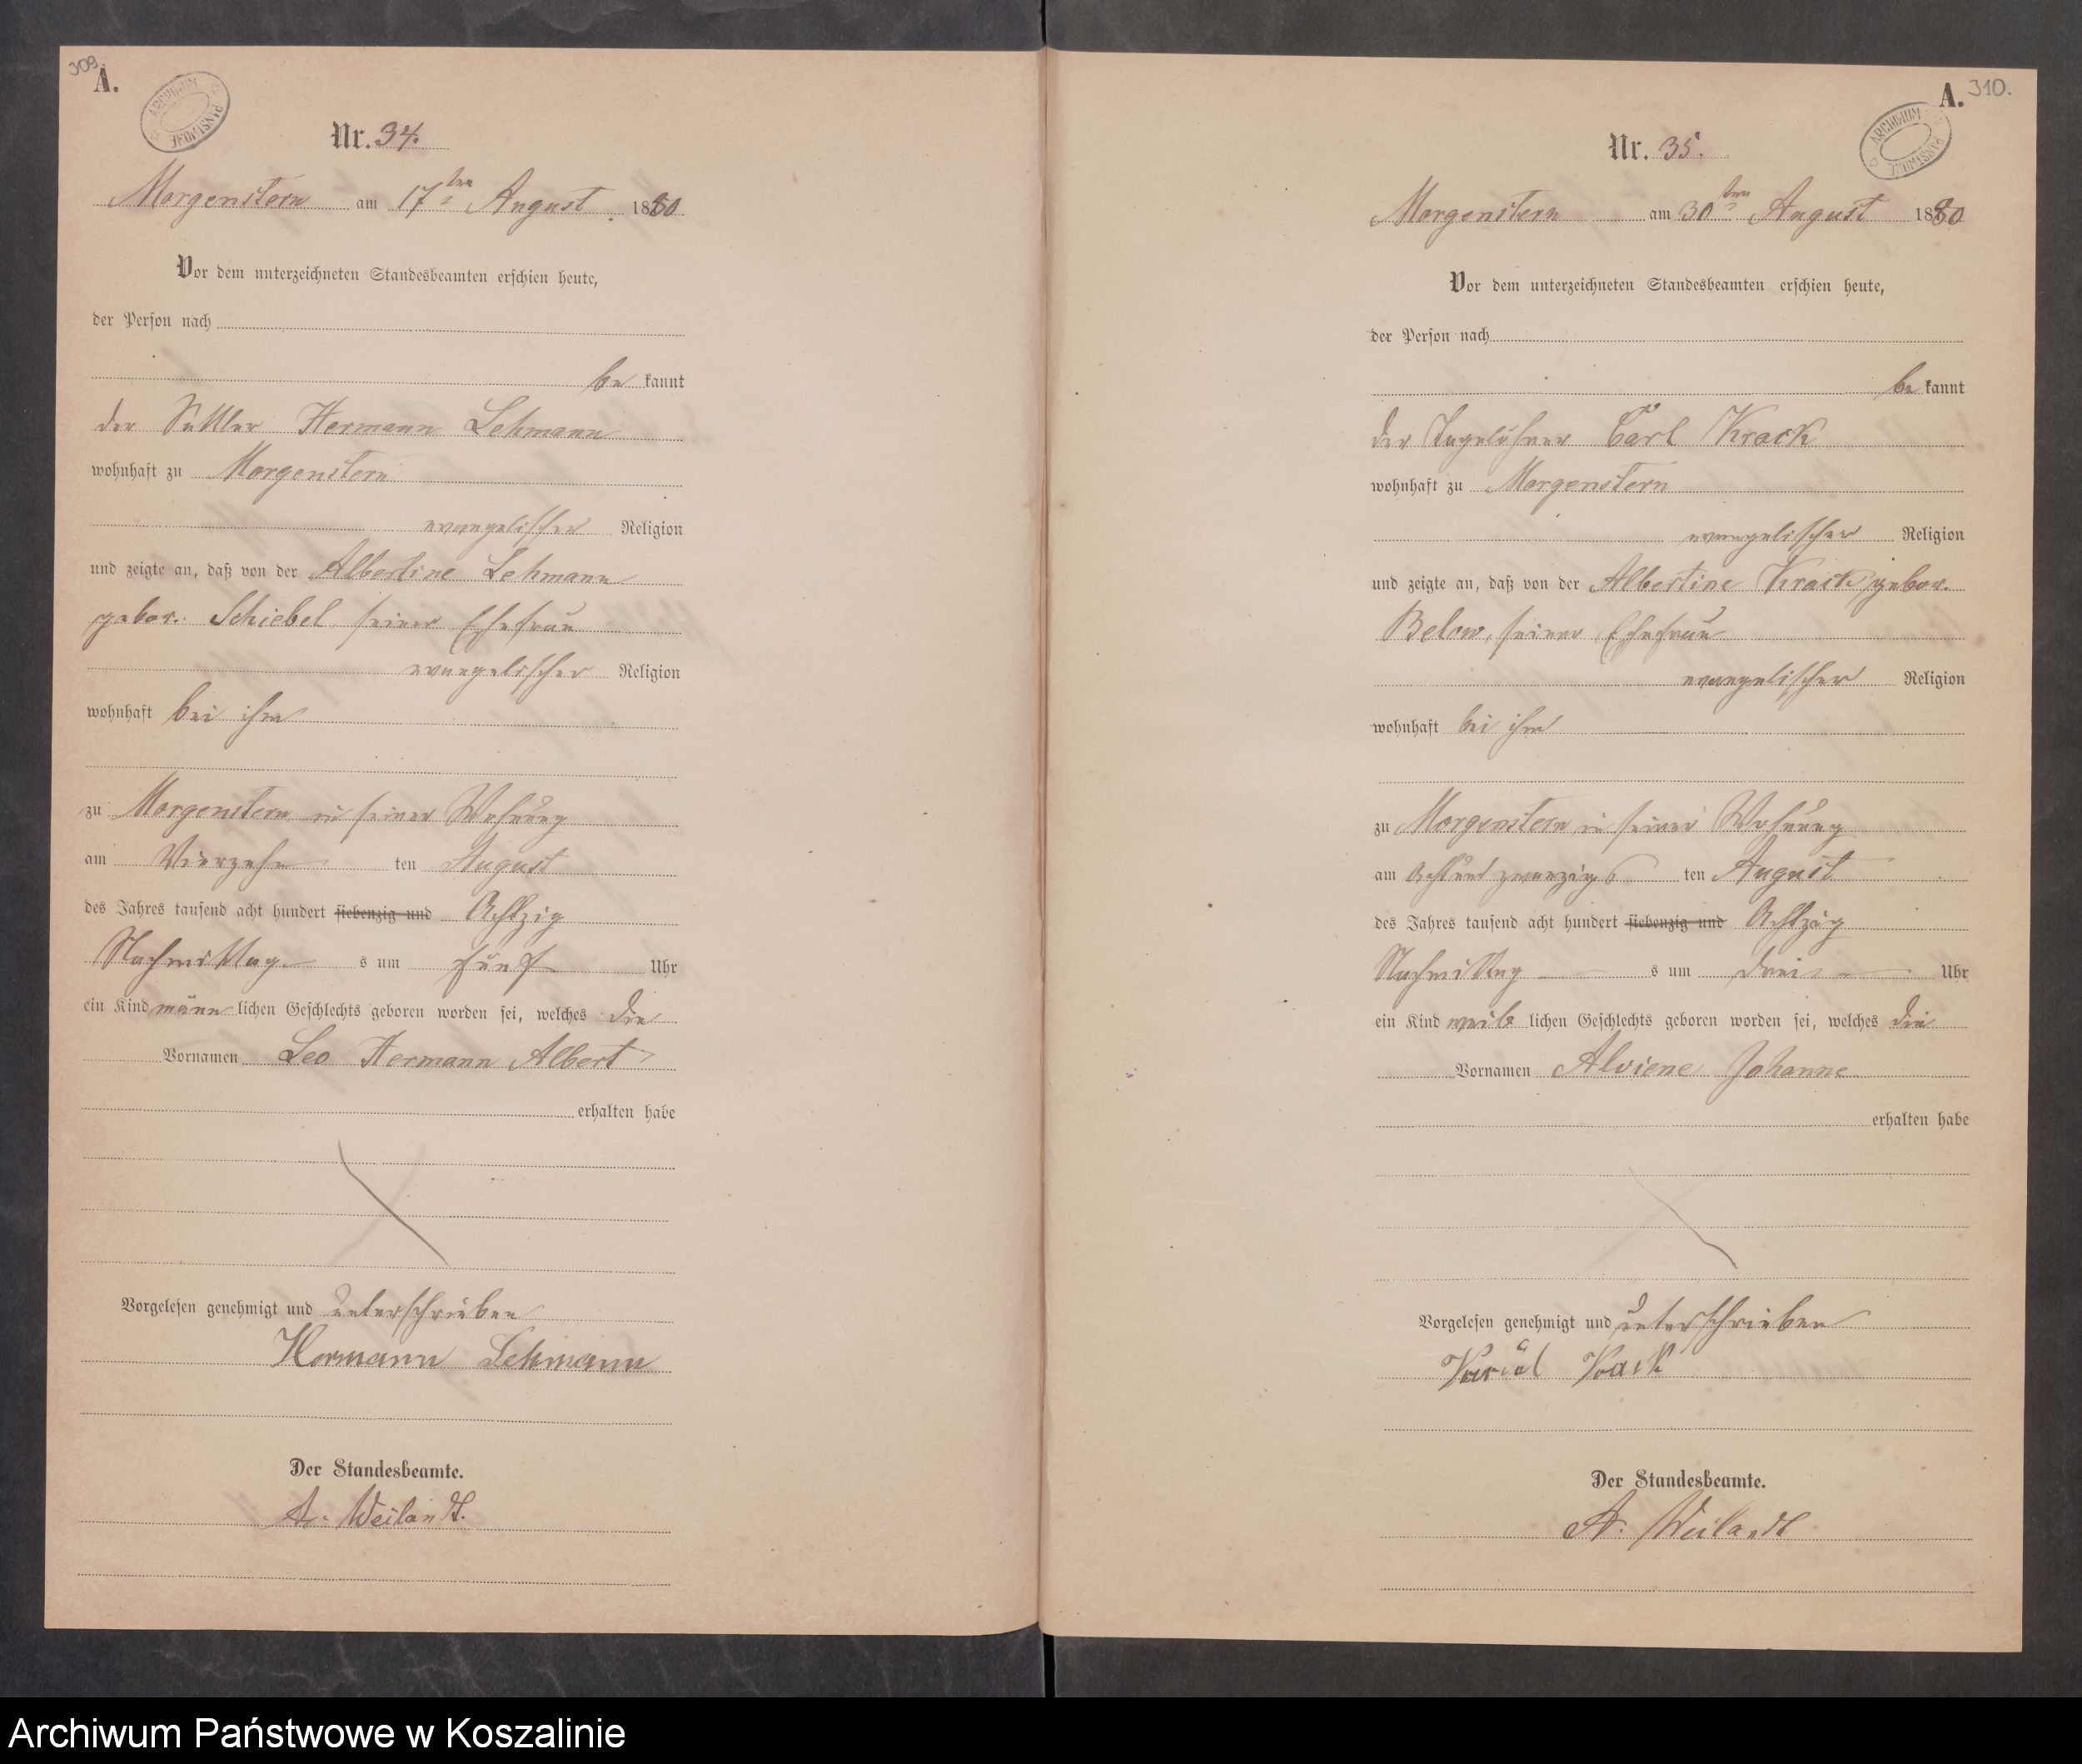 309.
A.
ARCHIWUM PAŃSTWOWE
Nr. 34.
Morgenstern am 17ten August 1880
Vor dem unterzeichneten Standesbeamten erschien heute,
der Person nach
be kannt
der Sattler Hermann Lehmann
wohnhaft zu Morgenstern
evangelischer Religion
und zeigte an, daß von der Albertine Lehmann
gebor. Schiebel, seiner Ehefrau
evangelischer Religion
wohnhaft bei ihm
zu Morgenstern in seiner Wohnung
am Vierzehn ten August
des Jahres tausend acht hundert siebenzig und Achtzig
Nachmittag s um fünf Uhr
ein Kind männ lichen Geschlechts geboren worden sei, welches die
Vornamen Leo Hermann Albert
erhalten habe
Vorgelesen genehmigt und unterschrieben
Hermann Lehmann
Der Standesbeamte.
A. Weilandt.
A. 310.
ARCHIWUM PAŃSTWOWE
Nr. 35.
Morgenstern am 30ten August 1880
Vor dem unterzeichneten Standesbeamten erschien heute,
der Person nach
be kannt
der Tagelöhner Carl Krack
wohnhaft zu Morgenstern
evangelischer Religion
und zeigte an, daß von der Albertine Krack gebor.
Below, seiner Ehefrau
evangelischer Religion
wohnhaft bei ihm
zu Morgenstern in seiner Wohnung
am Achtundzwanzigs ten August
des Jahres tausend acht hundert siebenzig und Achtzig
Nachmittag s um drei Uhr
ein Kind weib lichen Geschlechts geboren worden sei, welches die
Vornamen Alviene Johanne
erhalten habe
Vorgelesen genehmigt und unterschrieben
Krack
Der Standesbeamte.
A. Weilandt
Archiwum Państwowe w Koszalinie